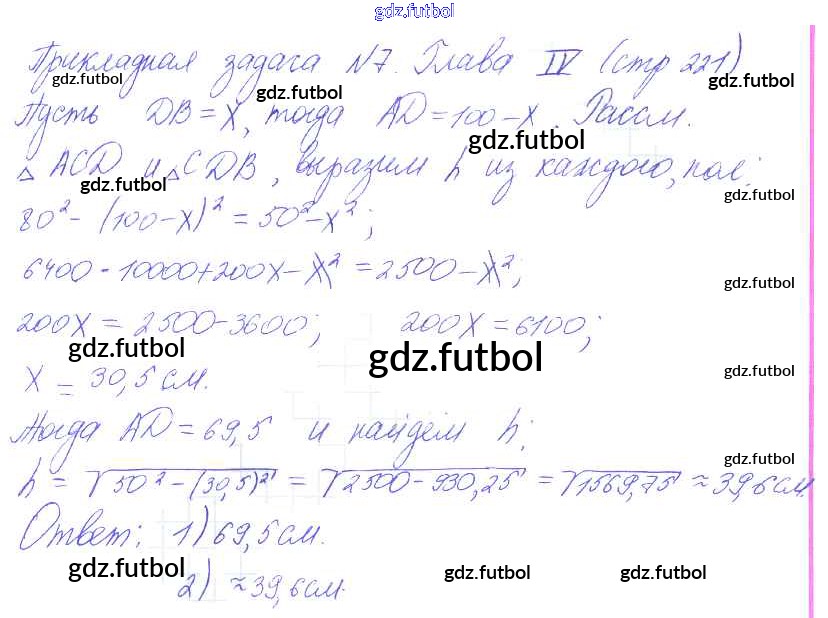 gdz.futbol
Прикладная задача N7. Глава IV (стр 221)
gdz.futbol gdz.futbol gdz.futbol
Пусть DB = X, тогда AD = 100 - X. Рассм.
gdz.futbol
△ ACD и △ CDB, выразим h из каждого, пол:
gdz.futbol gdz.futbol
80² - (100 - X)² = 50² - X²;
6400 - 10000 + 200X - X² = 2500 - X²;
gdz.futbol
200X = 2500 - 3600; 200X = 6100;
gdz.futbol gdz.futbol gdz.futbol
X = 30,5 см.
Тогда AD = 69,5 и найдем h:
gdz.futbol
h = √50² - (30,5)² = √2500 - 930,25 = √1569,75 ≈ 39,6 см.
Ответ: 1) 69,5 см.
gdz.futbol gdz.futbol gdz.futbol
2) ≈ 39,6 см.